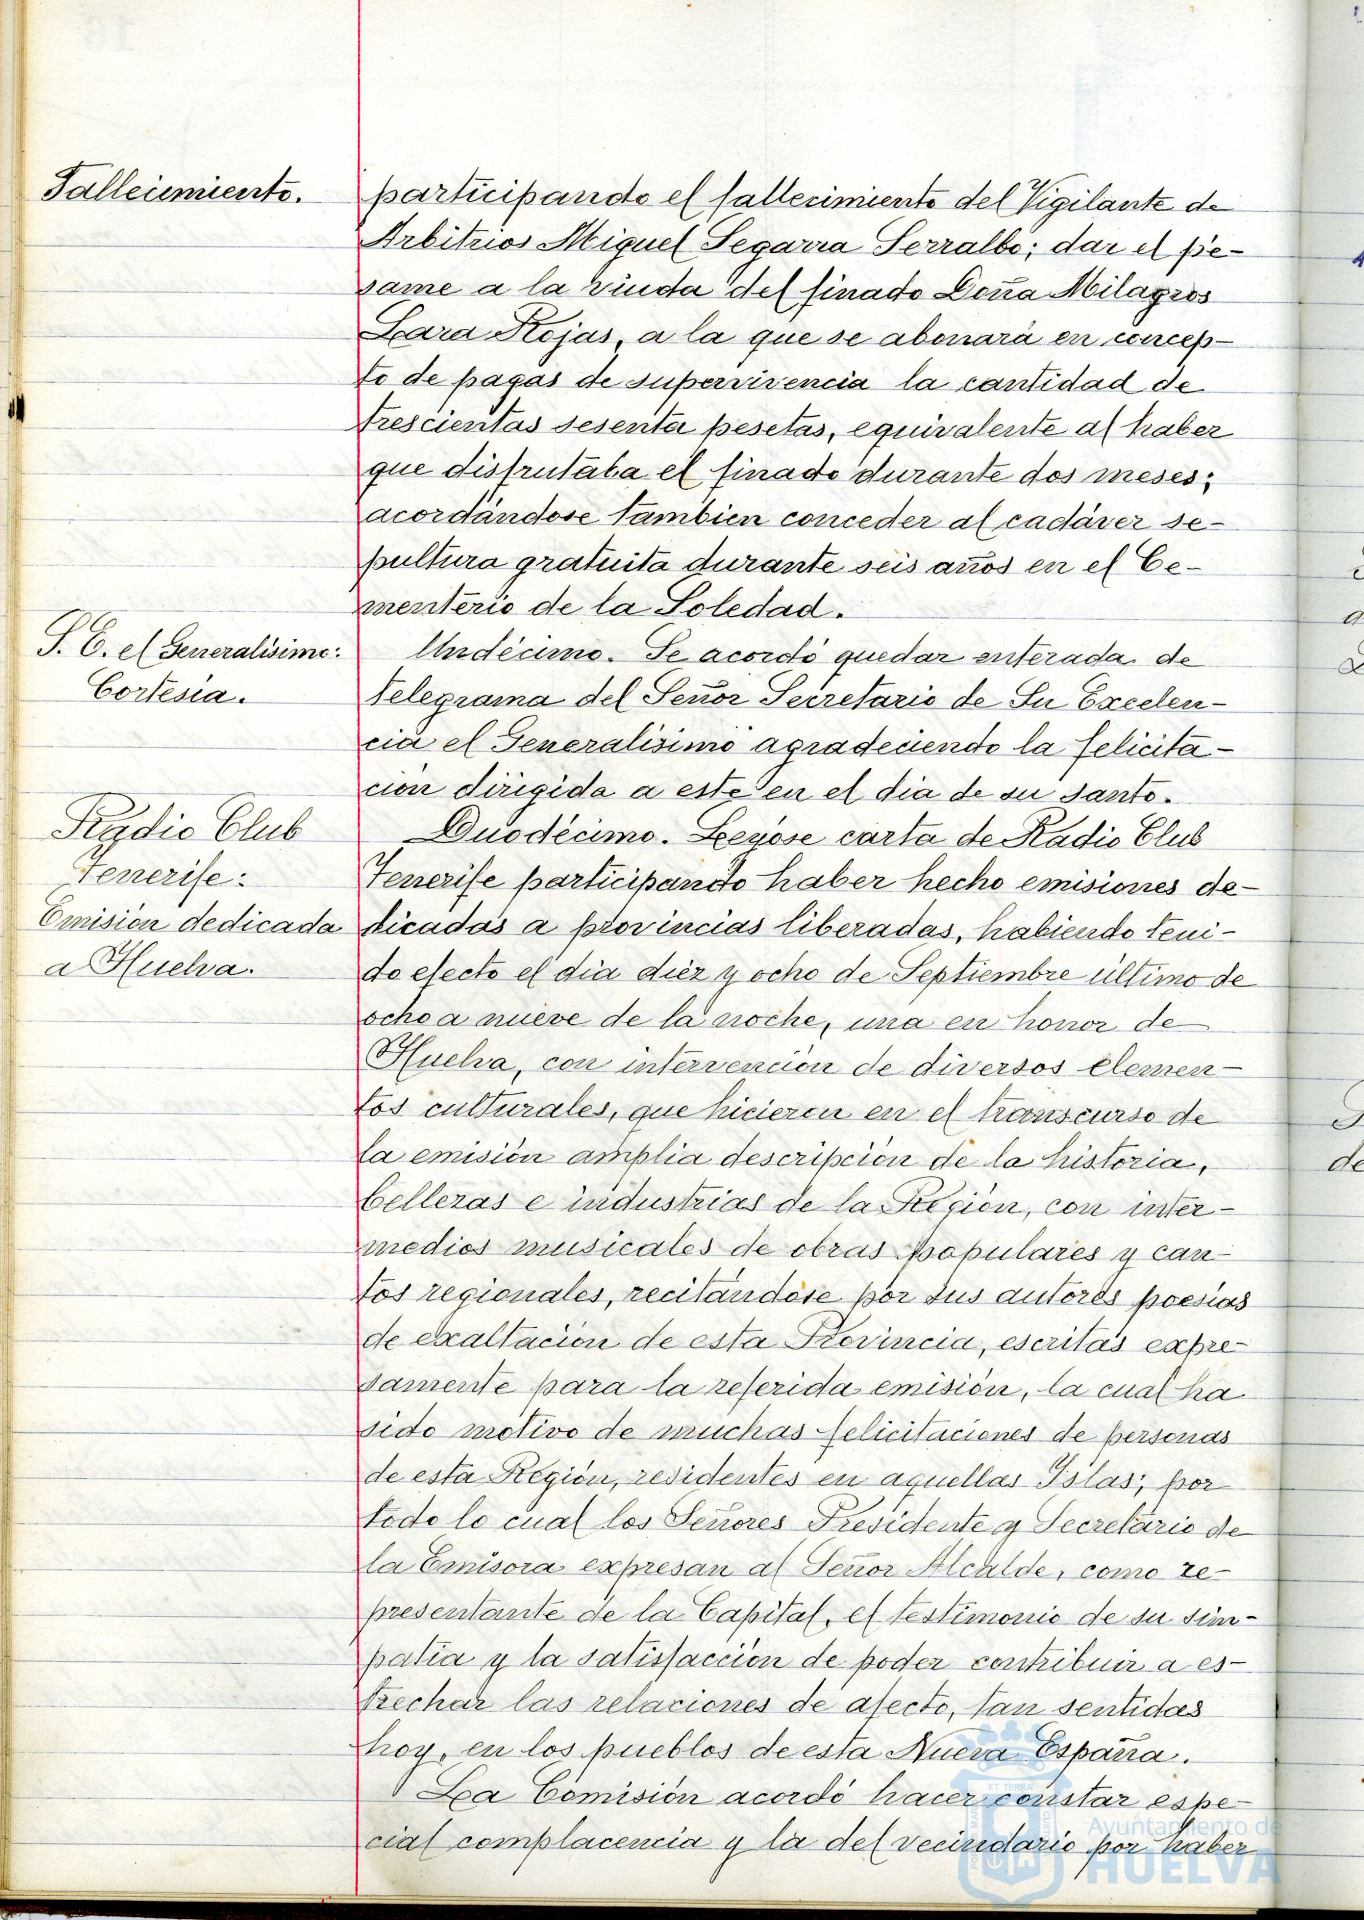 Fallecimiento.
participando el fallecimiento del Vigilante de
Arbitrios Miguel Segarra Serralbo; dar el pé-
same a la viuda del finado Doña Milagros
Lara Rojas, a la que se abonará en concep-
to de pagas de supervivencia la cantidad de
trescientas sesenta pesetas, equivalente al haber
que disfrutaba el finado durante dos meses;
acordándose tambien conceder al cadáver se-
pultura gratuita durante seis años en el Ce-
menterio de la Soledad.
S. E. el Generalísimo:
Cortesía.
Undécimo. Se acordó quedar enterada de
telegrama del Señor Secretario de Su Excelen-
cia el Generalísimo agradeciendo la felicita-
ción dirigida a este en el dia de su santo.
Radio Club
Tenerife:
Emisión dedicada
a Huelva.
Duodécimo. Leyóse carta de Radio Club
Tenerife participando haber hecho emisiones de-
dicadas a provincias liberadas, habiendo teni-
do efecto el dia diez y ocho de Septiembre último de
ocho a nueve de la noche, una en honor de
Huelva, con intervención de diversos elemen-
tos culturales, que hicieron en el transcurso de
la emisión amplia descripción de la historia,
bellezas e industrias de la Región, con inter-
medios musicales de obras populares y can-
tos regionales, recitándose por sus autores poesías
de exaltación de esta Provincia, escritas expre-
samente para la referida emisión, la cual ha
sido motivo de muchas felicitaciones de personas
de esta Región, residentes en aquellas Islas; por
todo lo cual los Señores Presidente y Secretario de
la Emisora expresan al Señor Alcalde, como re-
presentante de la Capital, el testimonio de su sim-
patía y la satisfacción de poder contribuir a es-
trechar las relaciones de afecto, tan sentidas
hoy, en los pueblos de esta Nueva España.
La Comisión acordó hacer constar espe-
cial complacencia y la del vecindario por haber
Ayuntamiento de
HUELVA